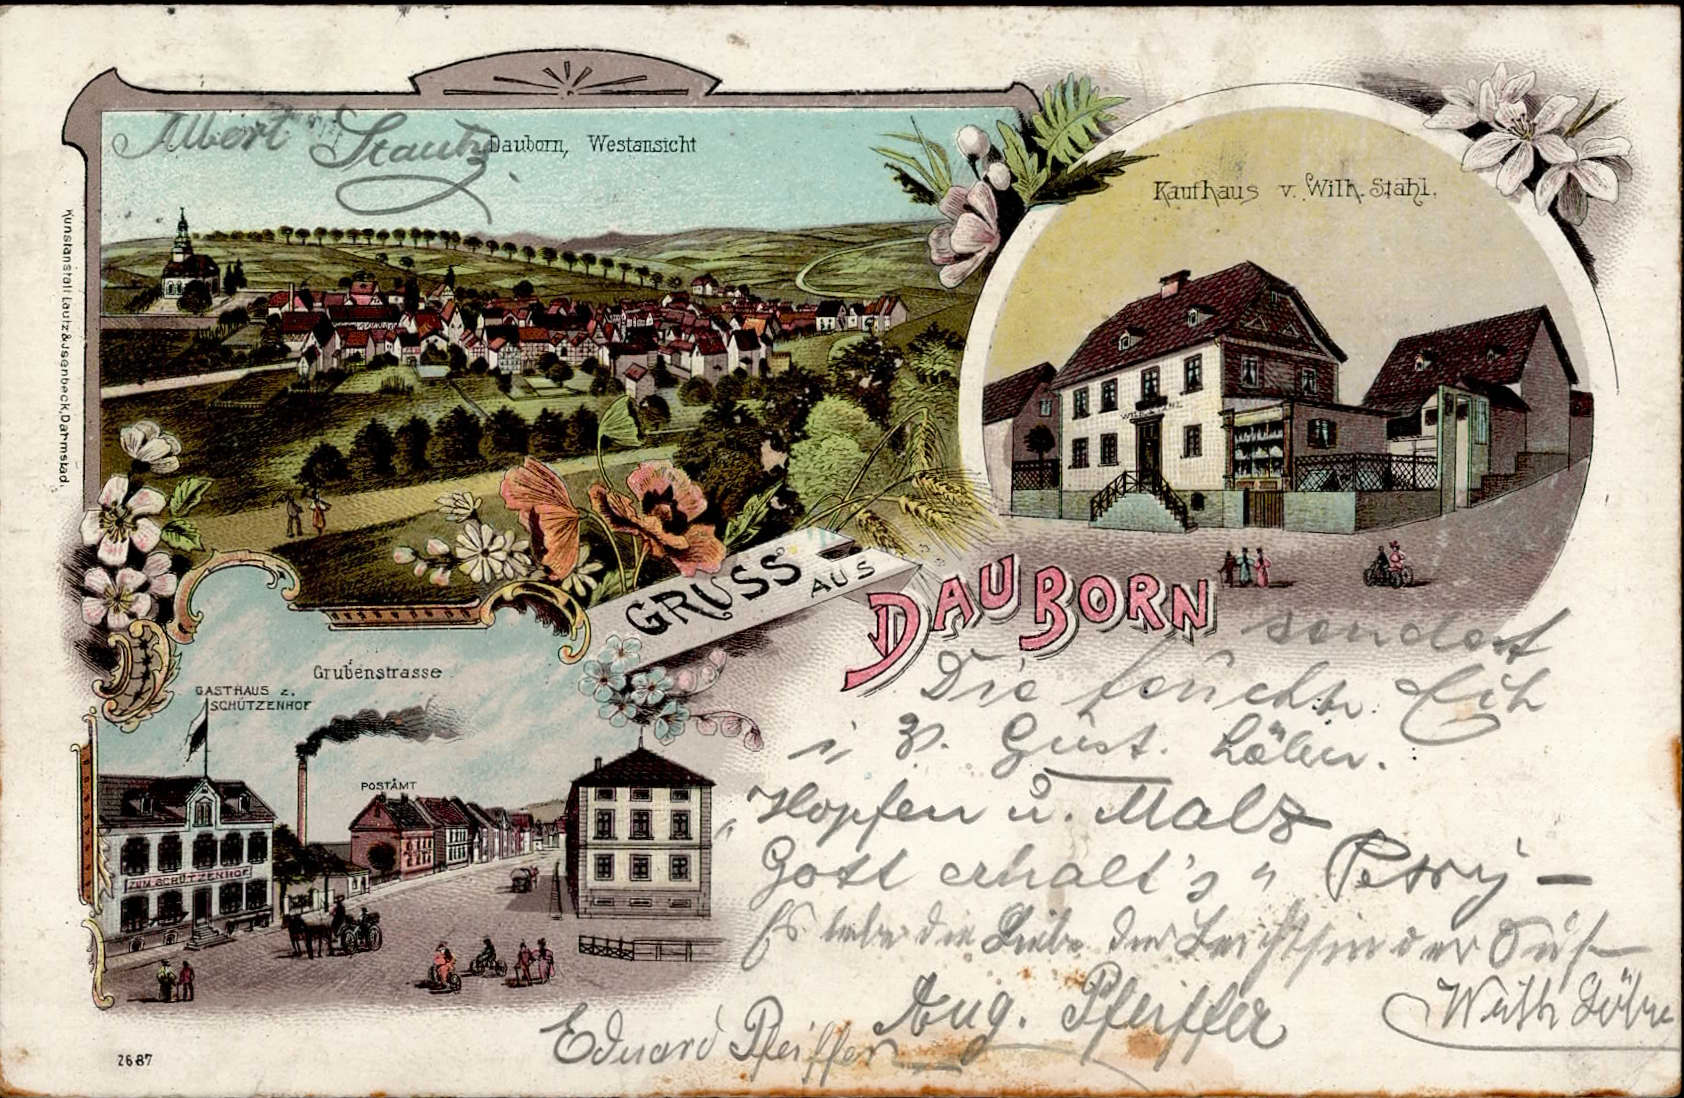 Albert Stautz
Dauborn, Westansicht
Kaufhaus v. Wilh. Stahl.
WILH. STAHL
Kunstanstalt Lautz & Isenbeck, Darmstad.
GRUSS AUS
DAUBORN
Grubenstrasse
GASTHAUS z.
SCHÜTZENHOF
POSTAMT
ZUM SCHÜTZENHOF
sendet
Die
Gust.
"Hopfen u. Malz
Gott erhalt's"
Es lebe die Liebe der
Aug. Pfeiffer
Eduard Pfeiffer
2687